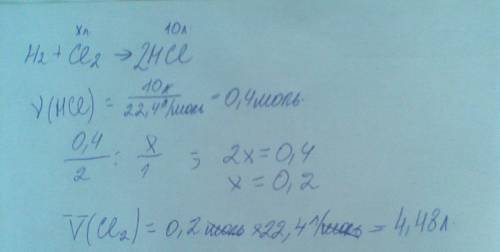 xл. 10л.
H2 + Cl2 → 2HCl
ν(HCl) = 10л / 22,4л/моль = 0,4моль.
0,4/2 : x/1 ; 2x = 0,4
x = 0,2
V(Cl2) = 0,2 моль × 22,4 л/моль = 4,48л.